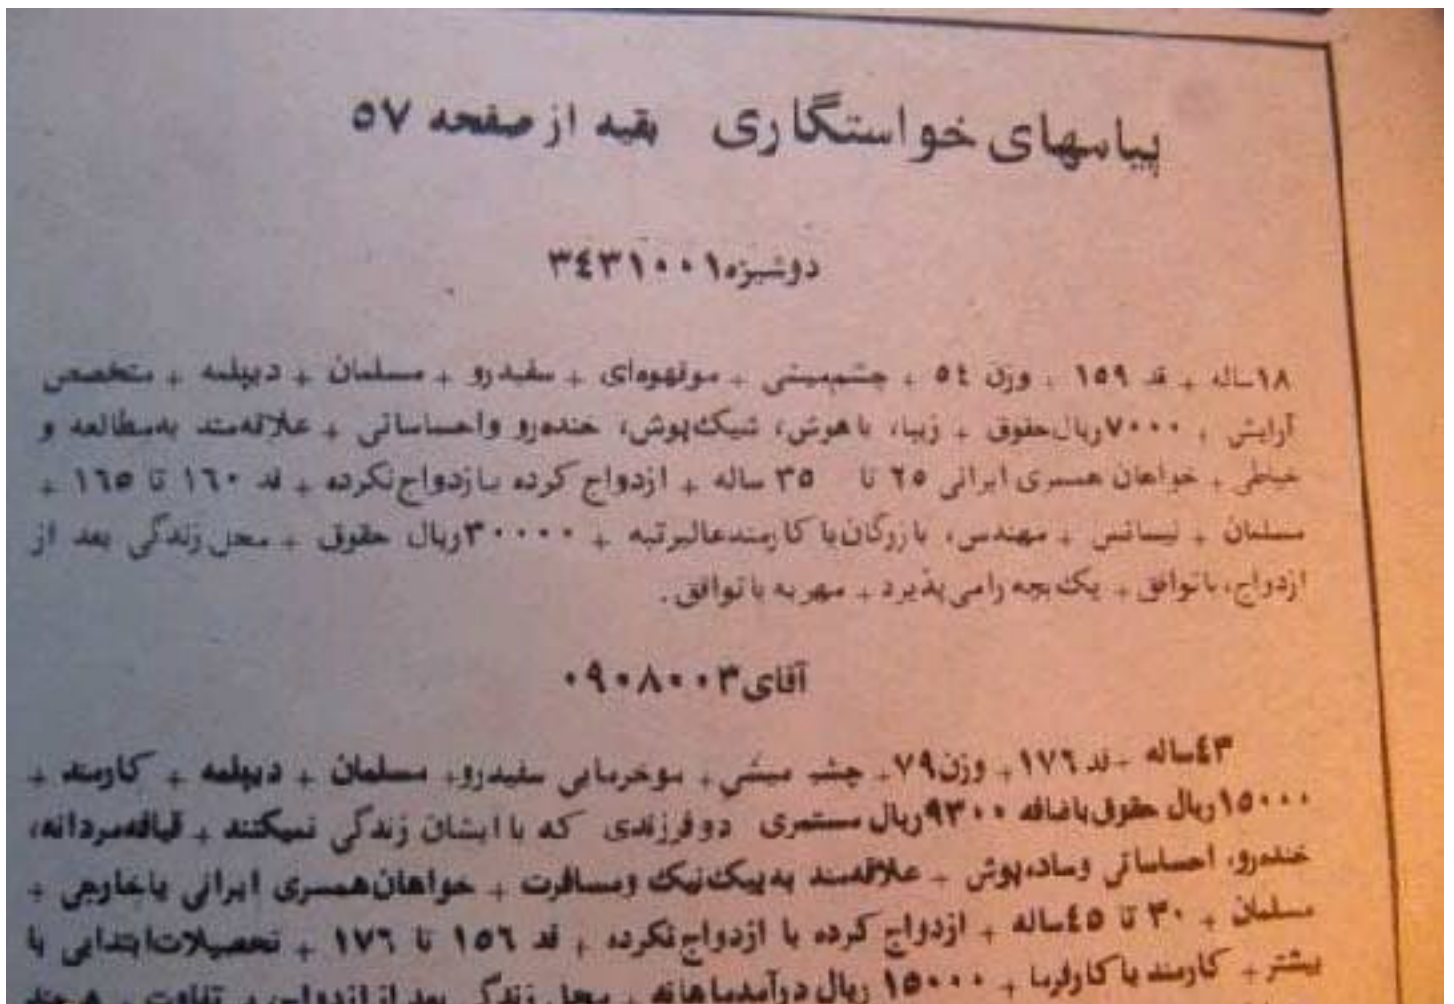 پیامهای خواستگاری بقیه از صفحه ۵۷
دوشیزه ۳٤۳۱۰۰۱
۱۸ساله + قد ۱۵۹ + وزن ۵٤ + چشم‌میشی + موقهوه‌ای + سفیدرو + مسلمان + دیپلمه + متخصص
آرایش + ۷۰۰۰ریال‌حقوق + زیبا، باهوش، شیک‌پوش، خنده‌رو واحساساتی + علاقه‌مند به‌مطالعه و
خیاطی + خواهان همسری ایرانی ۲۵ تا ۳۵ ساله + ازدواج کرده یاازدواج‌نکرده + قد ۱٦۰ تا ۱٦۵ +
مسلمان + لیسانس + مهندس، بازرگان‌یا کارمندعالیرتبه + ۳۰۰۰۰ریال حقوق + محل‌زندگی بعد از
ازدواج، باتوافق + یک‌بچه رامی‌پذیرد + مهریه باتوافق.
آقای ۰۹۰۸۰۰۳
٤۳ساله + قد ۱۷٦ + وزن ۷۹ + چشم میشی + موخرمایی سفیدرو + مسلمان + دیپلمه + کارمند +
۱۵۰۰۰ریال حقوق‌باضافه ۹۳۰۰ریال مستمری دوفرزندی که باایشان زندگی نمیکنند + قیافه‌مردانه،
خنده‌رو، احساساتی وساده‌پوش + علاقمند به‌پیک‌نیک ومسافرت + خواهان‌همسری ایرانی یاخارجی +
مسلمان + ۳۰ تا ٤۵ساله + ازدواج کرده یا ازدواج‌نکرده + قد ۱۵٦ تا ۱۷٦ + تحصیلات‌ابتدایی یا
بیشتر + کارمند یا کارفرما + ۱۵۰۰۰ ریال درآمدماهانه + محل زندگی بعد از ازدواج، تفاوت